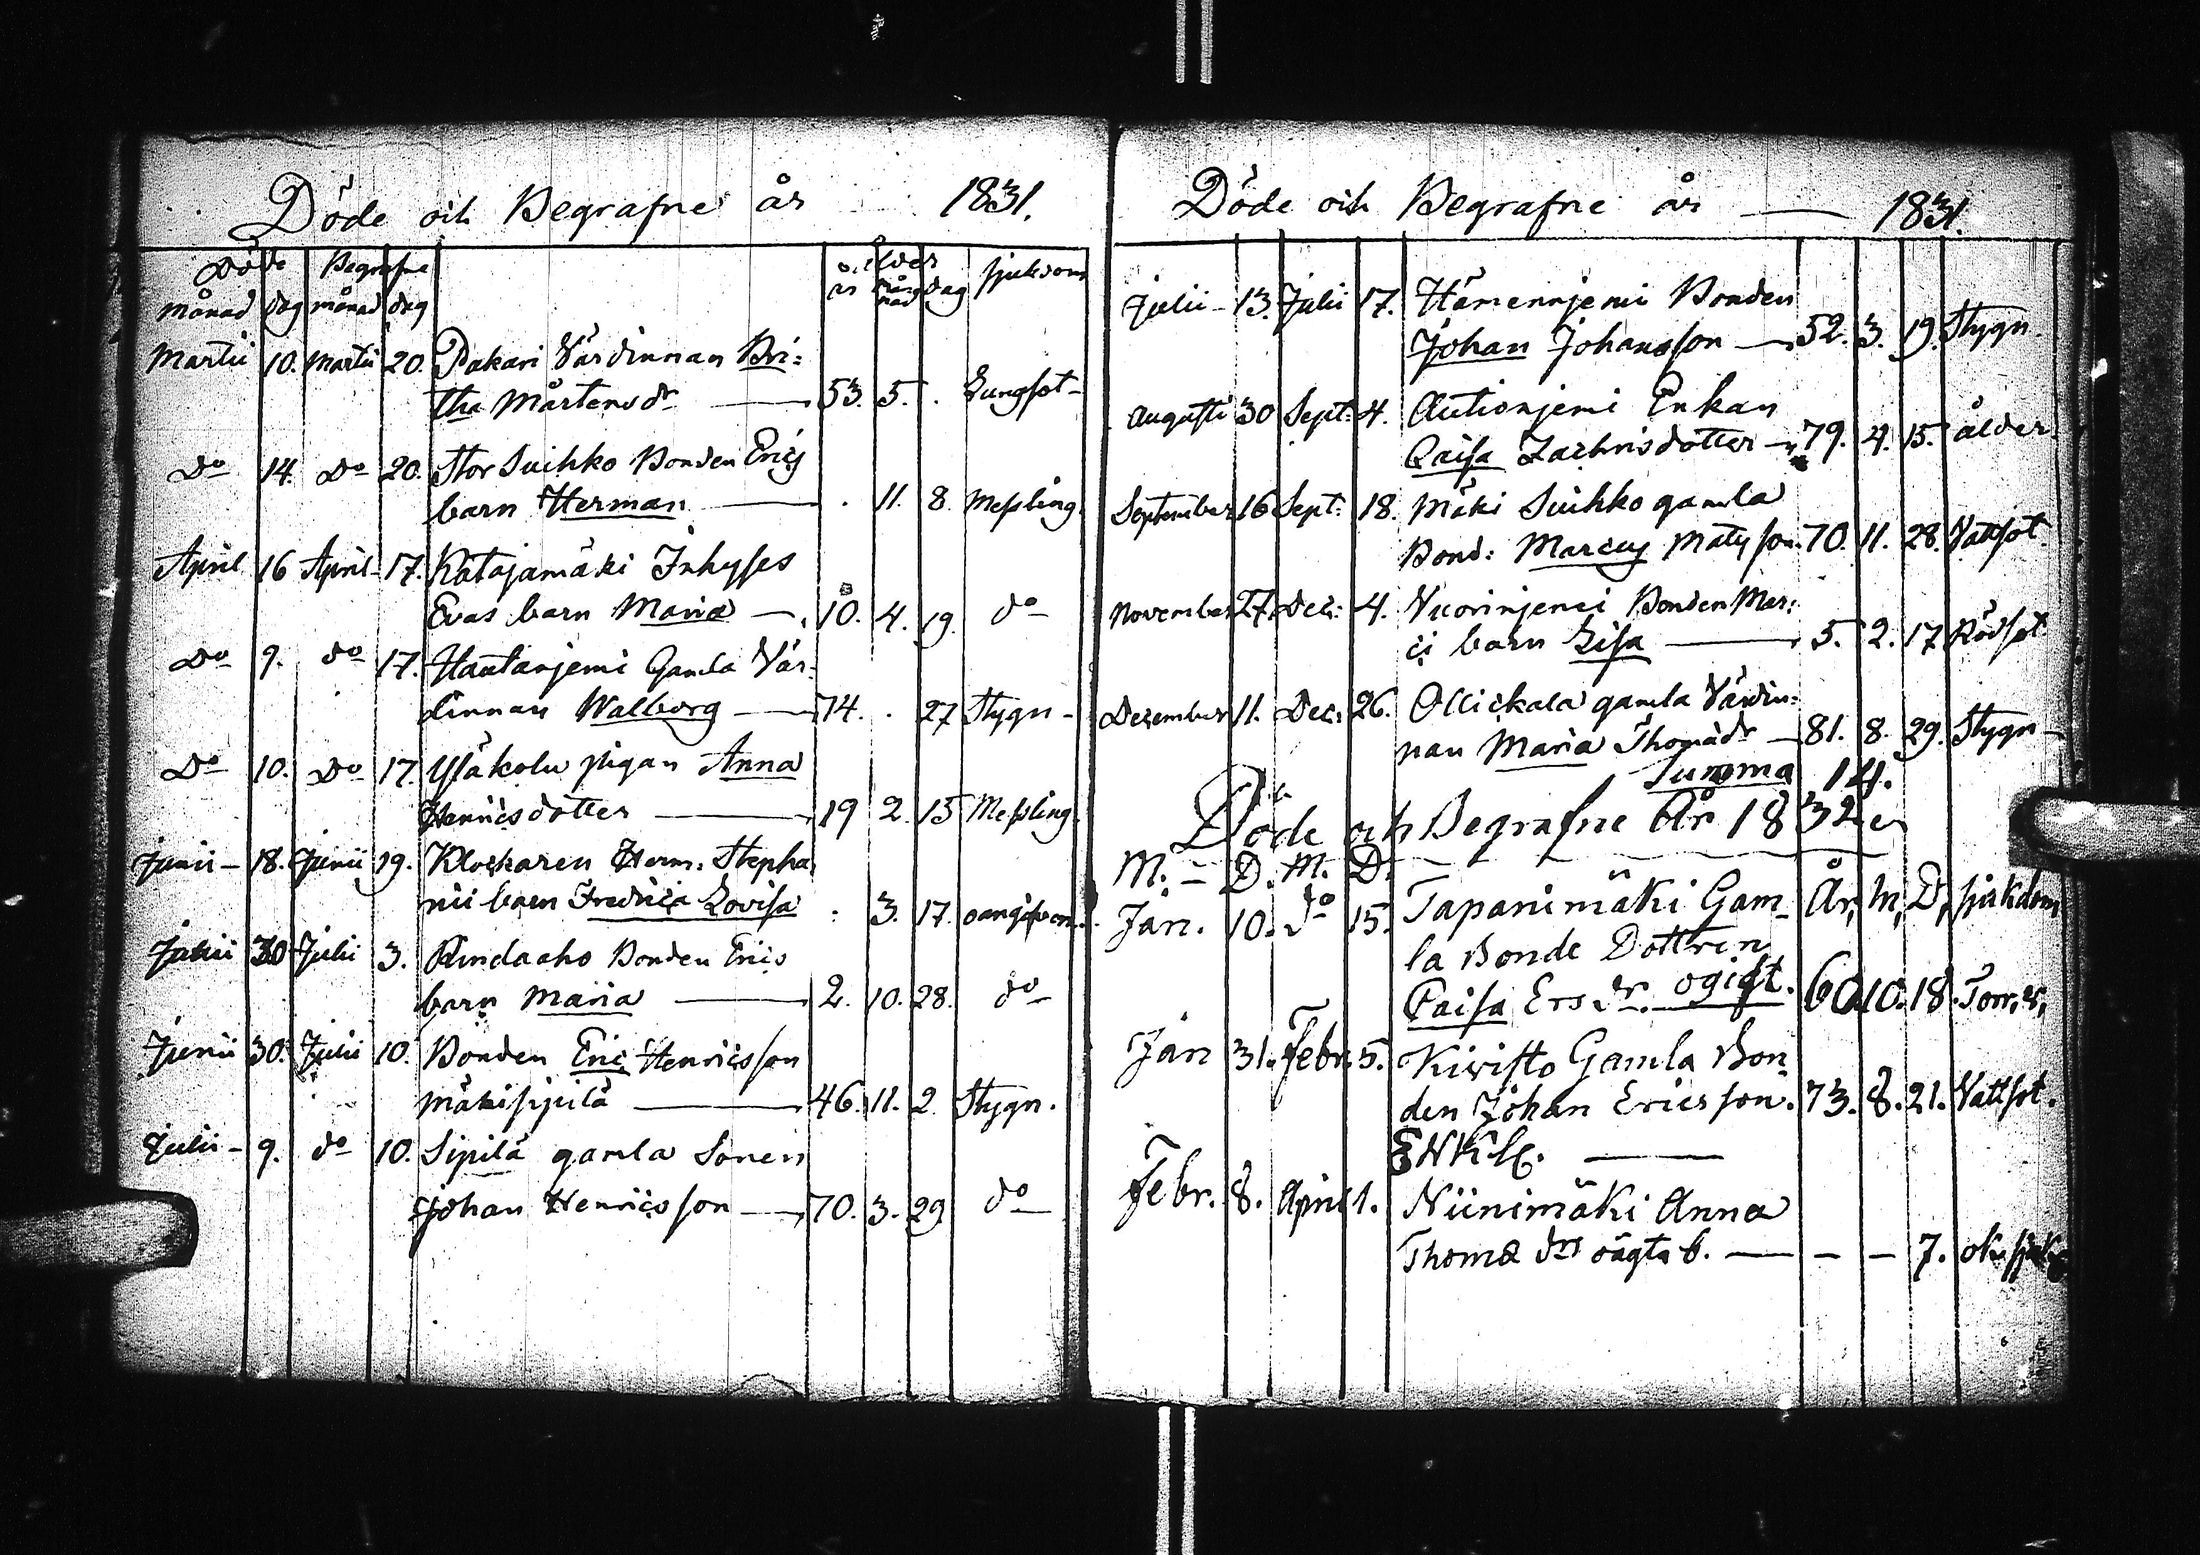 Döde och Begrafne år 1831.
Döde Begrafne ålder sjukdom
månad dag månad dag år månad dag
Martii 10. Martii 20. Pakari Värdinnan Bri:
tha Mårtensdr — 53. 5. . Lungsot -
Do 14. Do 20. Stor Suihko Bonden Erics
barn Herman — . 11. 8. Messling.
April 16 April 17. Katajamäki Inhyses
Evas barn Maria — 10. 4. 19. do
Do 9. do 17. Hautanjemi Gamla Vär-
dinnan Walborg — 74. . 27 Stygn -
Do 10. Do 17. Yläkolu pigan Anna
Henricsdotter — 19 2. 15 Messling
Junii - 18. Junii 19. Klockaren Herm: Stepha
nii barn Fredrica Lovisa . 3. 17. oangifven.
Junii 30 Julii 3. Rindaaho Bonden Erics
barn Maria — 2. 10. 28. do
Junii 30. Julii 10. Bonden Eric Henricsson
Mäkisipilä — 46. 11. 2. Stygn.
Julii - 9. do 10. Sipilä gamla Sonen
Johan Henricsson — 70. 3. 29 do
Döde och Begrafne år — 1831.
Julii - 13. Julii 17. Hänennjemi Bonden
Johan Johansson — 52. 3. 19. Stygn
Augusti 30 Sept: 4. Autionjemi Enkan
Caisa Zachrisdotter — 79. 4. 15. ålder
September 16 Sept: 18. Mäki Suihko gamla
Bond: Marcus Matsson. 70. 11. 28. Vattsot.
November 27. Dec: 4. Vuorinjemi Bonden Mar:
ci barn Lisa — 5. 2. 17. Rödsot
December 11. Dec: 26. Ollickala gamla Värdin:
nan Maria Thomædr — 81. 8. 29. Stygn -
Summa 14.
Döde och Begrafne År 1832
M. - D. M. D.
Jan. 10. do 15. Tapanimäki Gam- År, M, D, sjukdom
la Bonde Dottren
Caisa Ersdr. ogift. 60. 10. 18. Torrv,
Jan 31. Febr. 5. Kivisto Gamla Bon
den Johan Ericsson. 73. 8. 21. Vattsot.
Febr. 8. April 1. Niinimäki Anna
Thomæ drs oägta b. — - - 7. ok. sjukd